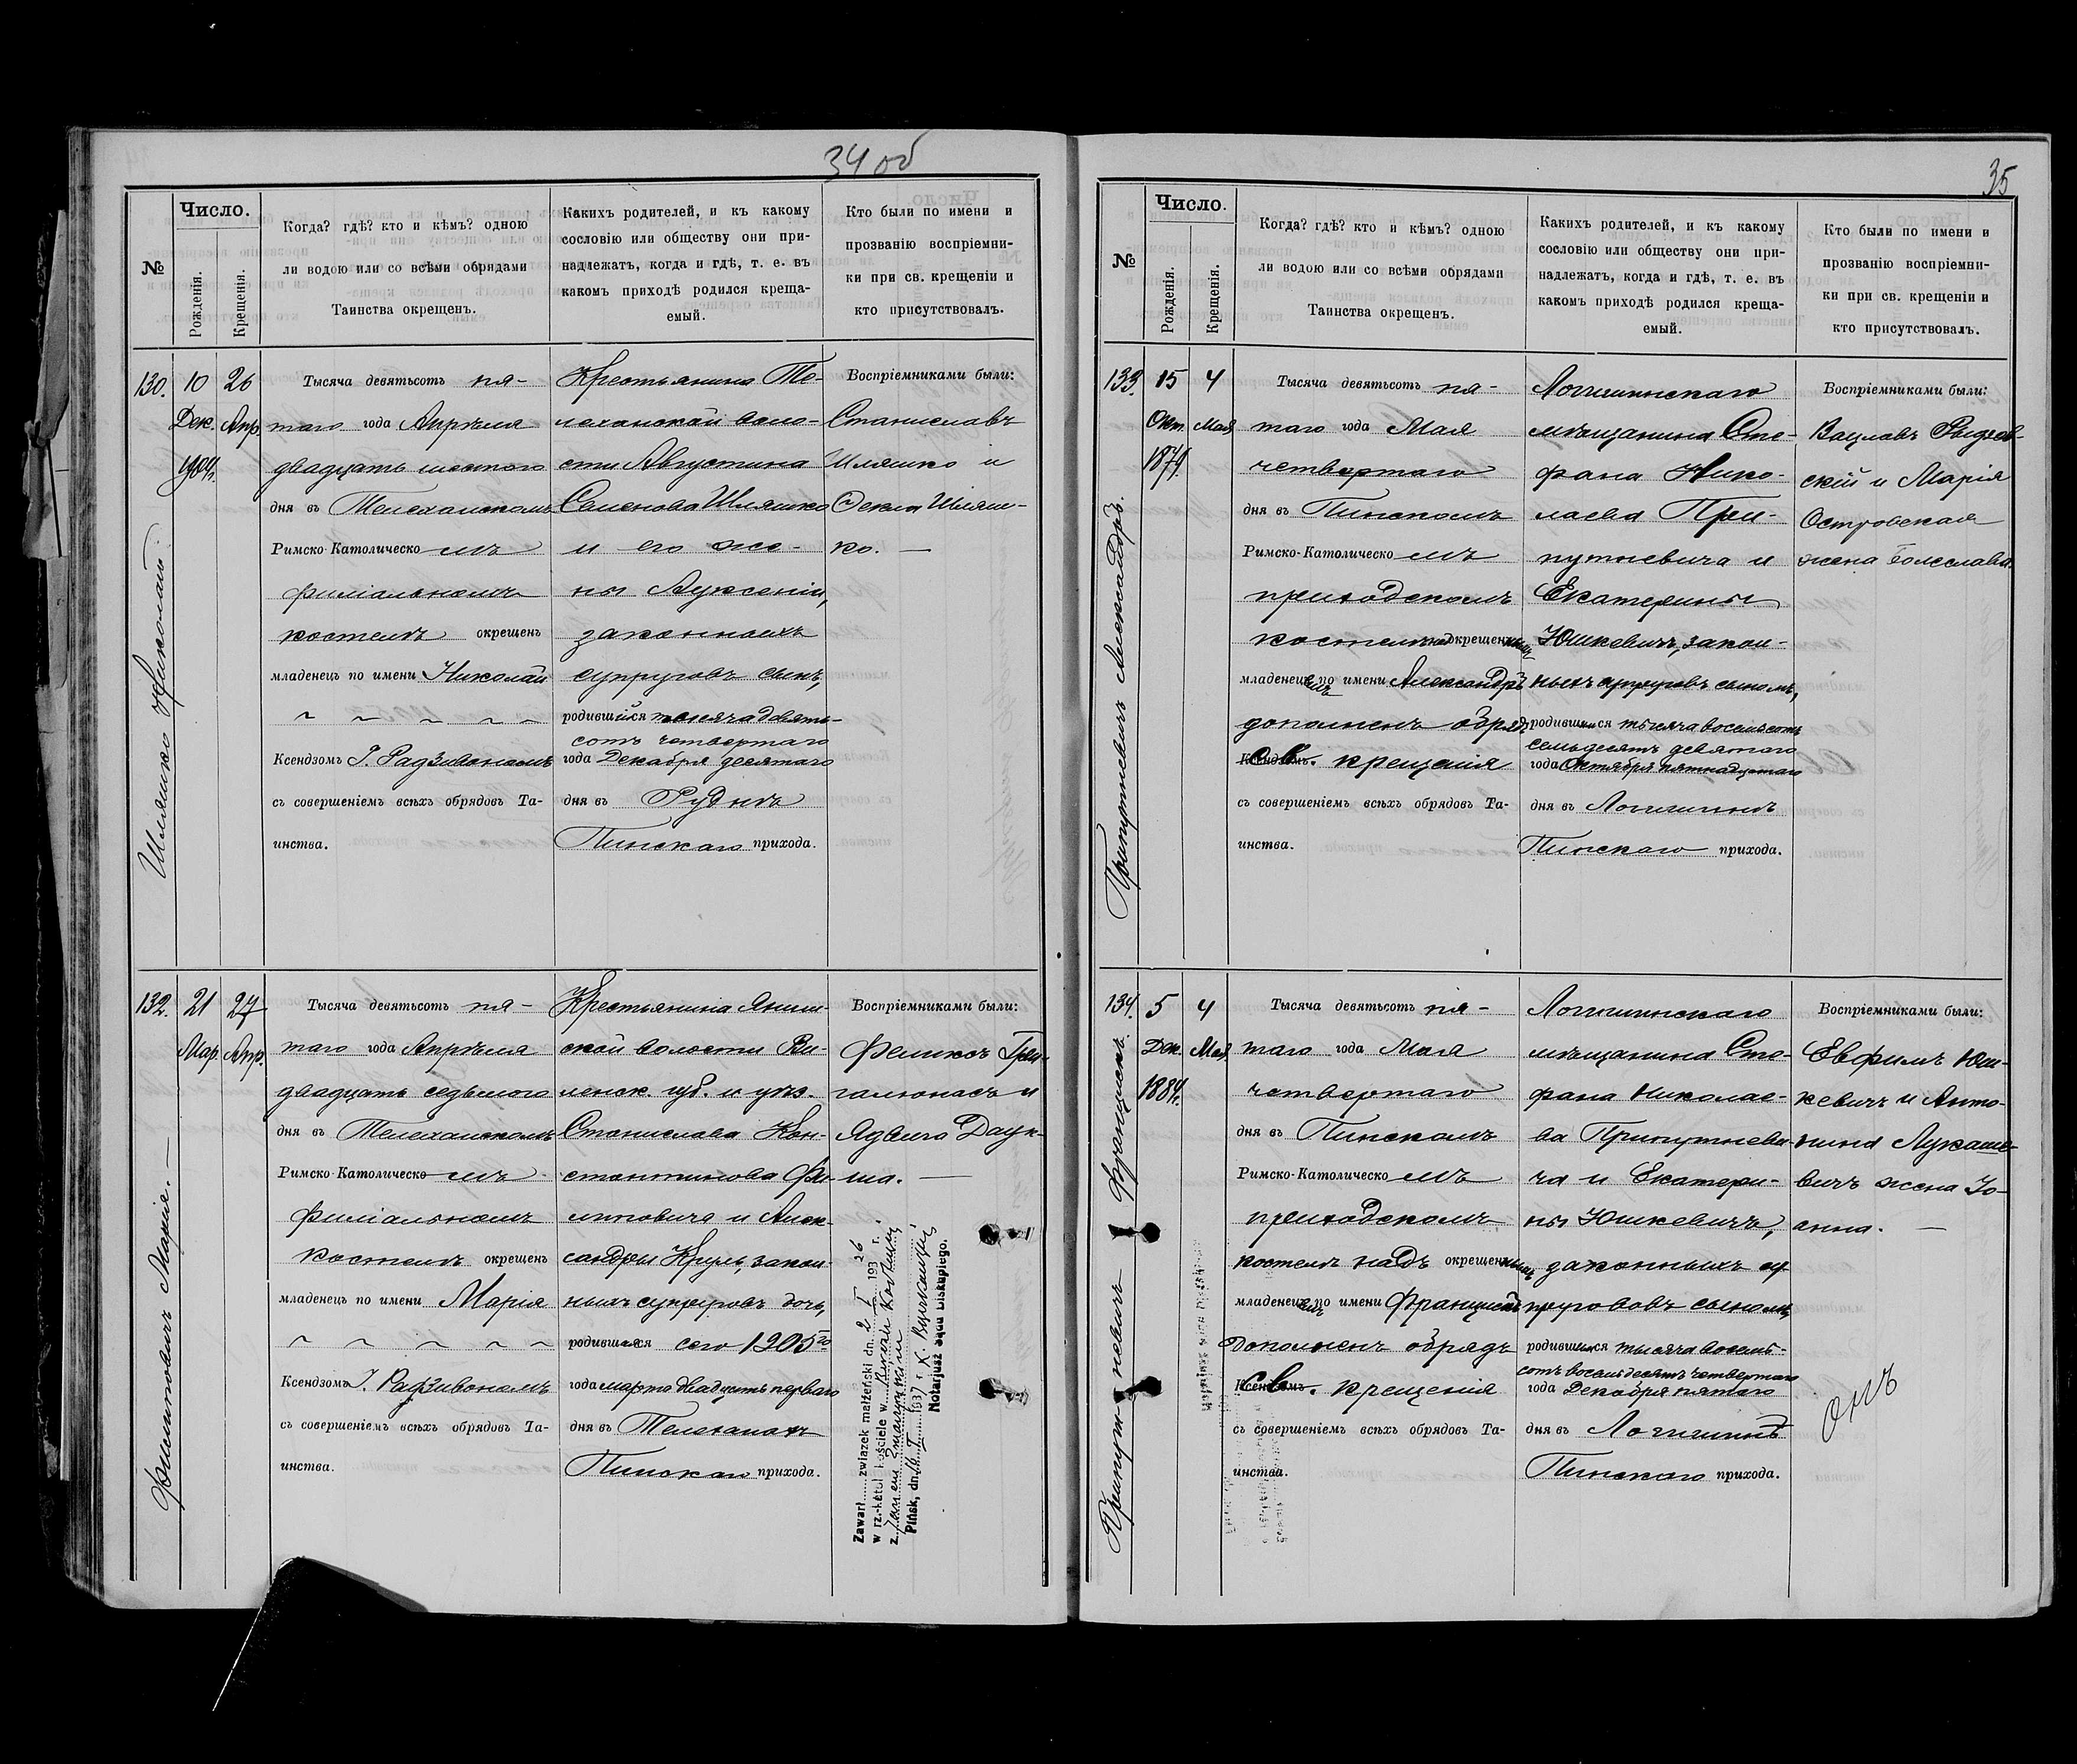 34 об
№
Число.
Рожденія.
Крещенія.
Когда? гдѣ? кто и кѣмъ? одною
ли водою или со всѣми обрядами
Таинства окрещенъ.
Какихъ родителей, и къ какому
сословію или обществу они при-
надлежатъ, когда и гдѣ, т. е. въ
какомъ приходѣ родился креща-
емый.
Кто были по имени и
прозванію воспріемни-
ки при св. крещеніи и
кто присутствовалъ.
130.
10
Дек.
1904г.
26
Апр.
Шляшко Николай
Тысяча девятьсотъ пя-
таго года Апрѣля
двадцать шестого
дня въ Телеханскомъ
Римско-Католическомъ
филіальномъ
костелѣ окрещенъ
младенецъ по имени Николай
Ксендзомъ І. Радзивономъ
съ совершеніемъ всѣхъ обрядовъ Та-
инства.
Крестьянина Те-
леханской воло-
сти Августина
Семенова Шляшко
и его же-
ны Евгеніи,
законныхъ
супруговъ сынъ,
родившійся тысяча девять-
сотъ четвертаго
года Декабря десятаго
дня въ Руднѣ
Пинскаго прихода.
Воспріемниками были:
Станиславъ
Шляшко и
Текля Шляш-
ко. —
132.
21
Мар.
27
Апр.
Филиповичъ Марія. —
Тысяча девятьсотъ пя-
таго года Апрѣля
двадцать седьмого
дня въ Телеханскомъ
Римско-Католическомъ
филіальномъ
костелѣ окрещенъ
младенецъ по имени Марія
Ксендзомъ І. Радзивономъ
съ совершеніемъ всѣхъ обрядовъ Та-
инства.
Крестьянина Яниш-
ской волости Ви-
ленск. губ. и уѣз.
Станислава Кон-
стантинова Фи-
липовича и Алек-
сандры Круль, закон-
ныхъ супруговъ дочь,
родившаяся сего 1905го
года марта двадцать перваго
дня въ Телеханахъ
Пинскаго прихода.
Воспріемниками были:
Феликсъ Гри-
галюнасъ и
Ядвига Даук-
ша. —
Zawarł związek małżeński dn. 2 I 1936 r.
w rz.-katol. kościele w
z Janem
Pińsk, dn. 16 I 1937 r. K.
Notarjusz Sądu Biskupiego.
35
№
Число.
Рожденія.
Крещенія.
Когда? гдѣ? кто и кѣмъ? одною
ли водою или со всѣми обрядами
Таинства окрещенъ.
Какихъ родителей, и къ какому
сословію или обществу они при-
надлежатъ, когда и гдѣ, т. е. въ
какомъ приходѣ родился креща-
емый.
Кто были по имени и
прозванію воспріемни-
ки при св. крещеніи и
кто присутствовалъ.
133.
15
Окт.
1879
4
Мая
Припутневичъ Александръ.
Тысяча девятьсотъ пя-
таго года Мая
четвертаго
дня въ Пинскомъ
Римско-Католическомъ
приходскомъ
костелѣ надъ окрещеннымъ
младенцемъ по имени Александръ
дополненъ обрядъ
св. крещенія
съ совершеніемъ всѣхъ обрядовъ Та-
инства.
Логишинскаго
мѣщанина Сте-
фана Нико-
лаева При-
путневича и
Екатерины
Юшкевичъ, закон-
ныхъ супруговъ сыномъ,
родившимся тысяча восемьсотъ
семьдесятъ девятаго
года Октября пятнадцатаго
дня въ Логишинѣ
Пинскаго прихода.
Воспріемниками были:
Вацлавъ Рыдзев-
скій и Марія
Островская
жена Болеслава.
134.
5
Дек.
1884г.
4
Мая
Припутневичъ Францискъ.
Тысяча девятьсотъ пя-
таго года Мая
четвертаго
дня въ Пинскомъ
Римско-Католическомъ
приходскомъ
костелѣ надъ окрещеннымъ
младенцемъ по имени Францискъ
дополненъ обрядъ
св. крещенія
съ совершеніемъ всѣхъ обрядовъ Та-
инства.
Логишинскаго
мѣщанина Сте-
фана Николае-
ва Припутневи-
ча и Екатери-
ны Юшкевичъ,
законныхъ су-
пруговъ сыномъ,
родившимся тысяча восемь-
сотъ восемьдесятъ четвертаго
года Декабря пятаго
дня въ Логишинѣ
Пинскаго прихода.
Воспріемниками были:
Евфимъ Юш-
кевичъ и Анто-
нина Лукаше-
вичъ жена Іо-
анна. —